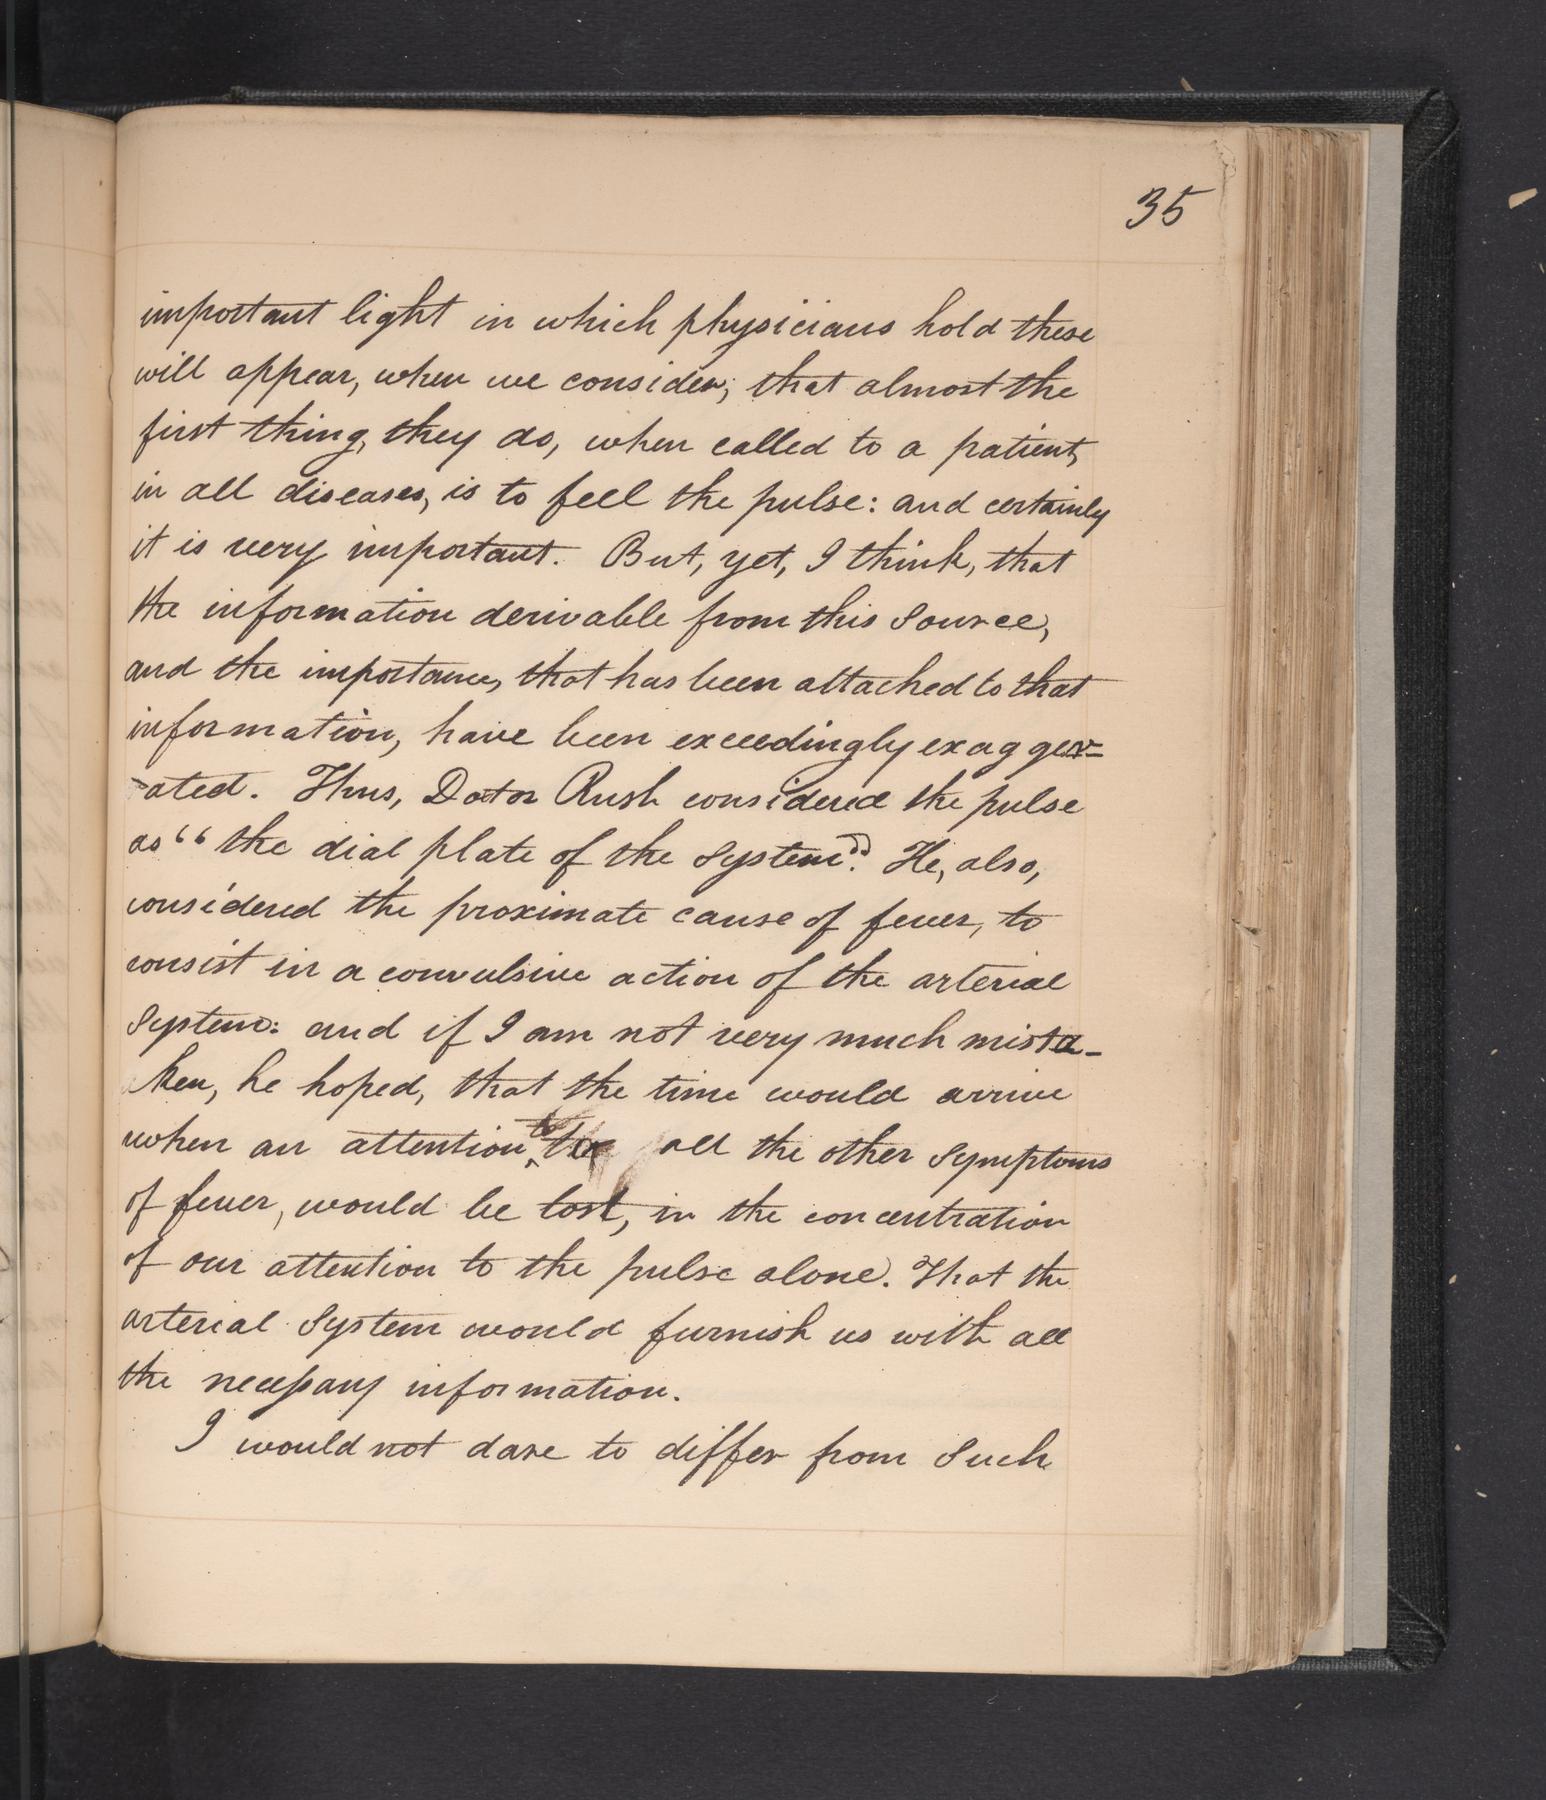 35
important light in which physicians hold these
will appear, when we consider; that almost the
first thing, they do, when called to a patient,
in all diseases, is to feel the pulse: and certainly
it is very important. But, yet, I think, that
the information derivable from this source,
and the importance, that has been attached to that
information, have been exceedingly exagger=
-ated. Thus, Dotor Rush considered the pulse
as "the dial plate of the system". He, also,
considered the proximate cause of fever, to
consist in a convulsive action of the arterial
system: and if I am not very much mista-
ken, he hoped, that the time would arrive
when an attention to all the other symptoms
of fever, would be lost, in the concentration
of our attention to the pulse alone. That the
arterial system would furnish us with all
the necessary information.
I would not dare to differ from such